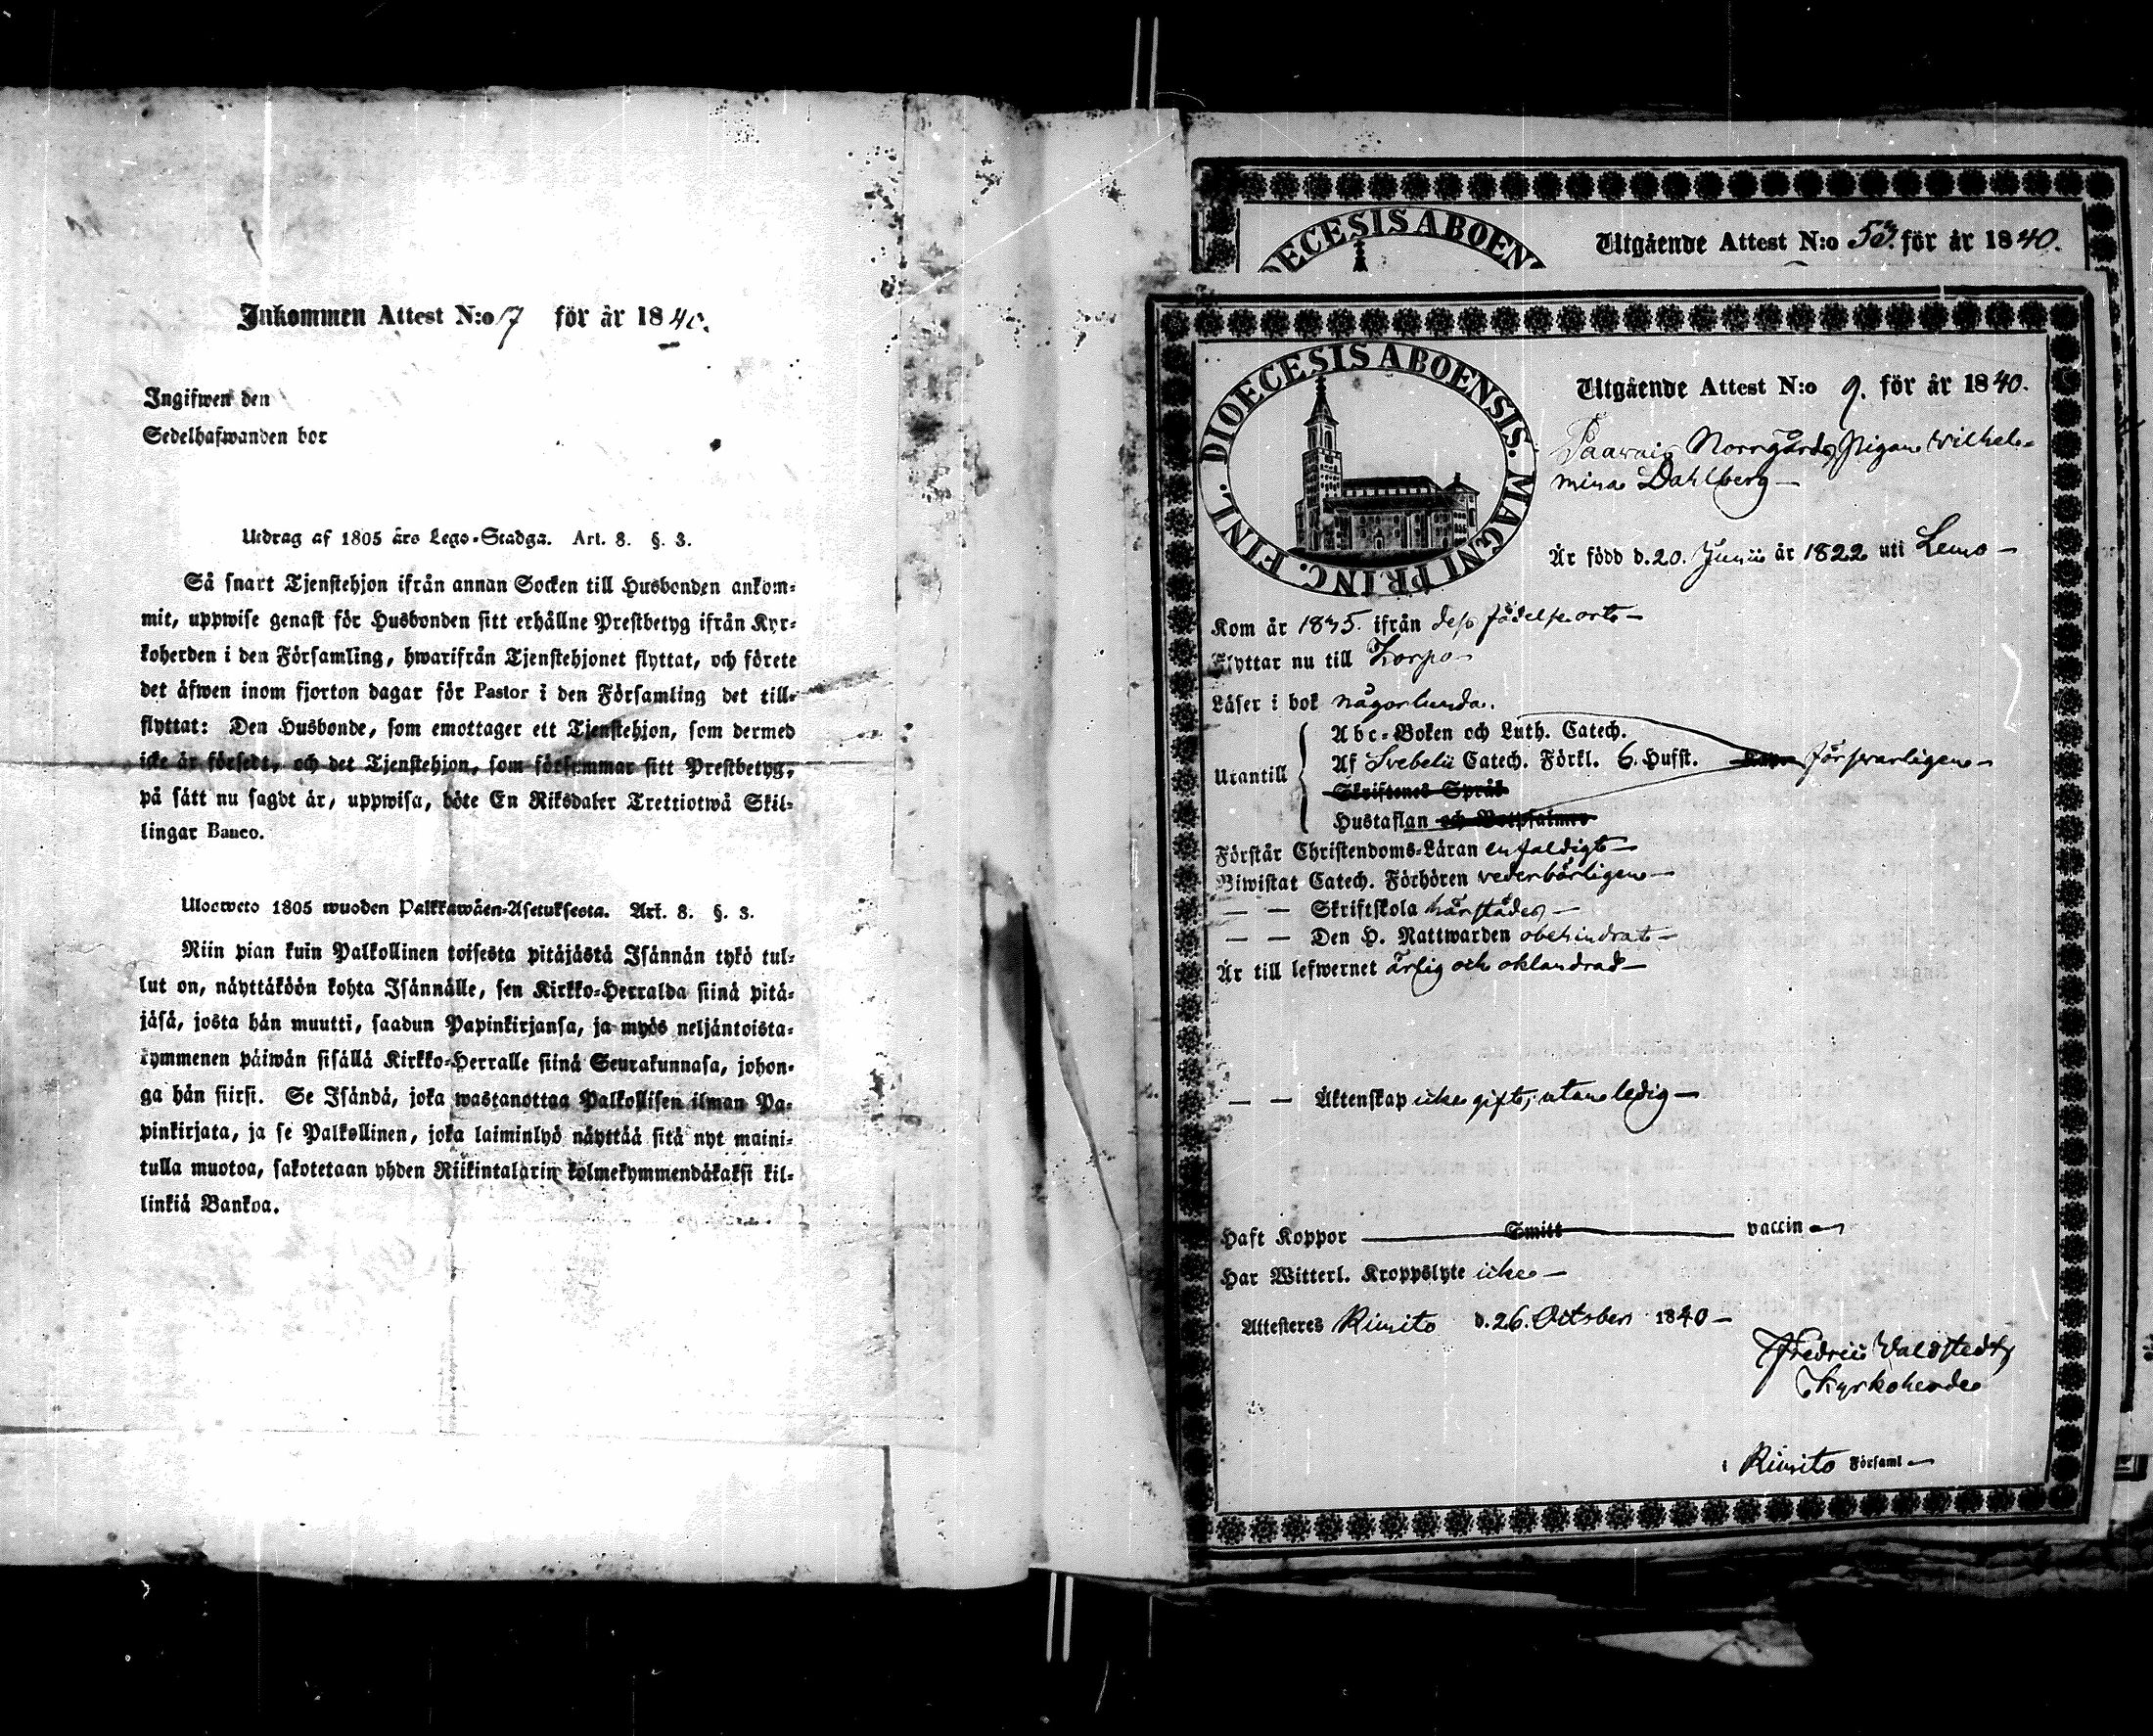 Inkommen Attest N:o 7 för år 1840.
Ingifwen den
Sedelhafwanden bor
Utdrag af 1805 års Lego-Stadga. Art. 8. §. 3.
Så snart Tjenstehjon ifrån annan Socken till Husbonden ankom-
mit, uppwise genast för Husbonden sitt erhållne Prestbetyg ifrån Kyr-
koherden i den Församling, hwarifrån Tjenstehjonet flyttat, och förete
det åfwen inom fjorton dagar för Pastor i den Församling det till-
flyttat: Den Husbonde, som emottager ett Tjenstehjon, som dermed
icke är försedt, och det Tjenstehjon, som försummar sitt Prestbetyg,
på sått nu sagdt år, uppwisa, böte En Riksdaler Trettiotwå Skil-
lingar Banco.
Uloswето 1805 wuoden Palkkawäen-Asetuksesta. Art. 8. §. 3.
Niin pian kuin Palkollinen toisesta pitäjästä Isännän tykö tul-
lut on, näyttäköön kohta Isännälle, sen Kirkko-Herralda siinä pitä-
jäsä, josta hän muutti, saadun Papinkirjansa, ja myös neljäntoista-
kymmenen päiwän sisällä Kirkko-Herralle siinä Seurakunnasa, johon-
ga hän siirsi. Se Isändä, joka wastanottaa Palkollisen ilman Pa-
pinkirjata, ja se Palkollinen, joka laiminlyö näyttää sitä nyt maini-
tulla muotoa, sakotetaan yhden Riikintalarin kolmekymmendäkaksi kil-
linkiä Bankoa.
DIOECESIS ABOEN
Utgående Attest N:o 53. för år 1840.
DIOECESIS ABOENSIS. MAGNI PRINC. FINL.
Utgående Attest N:o 9. för år 1840.
Paarais Norrgårds Pigan Wilhel-
mina Dahlberg
År född d. 20. Junii år 1822 uti Lemo
Kom år 1835. ifrån dess födelseort
Flyttar nu till Korpo
Läser i bok någorlunda.
Utantill
Abc-Boken och Luth. Catech.
Af Svebelii Catech. Förkl. 6. Hufst. försvarligen
Skriftenes Språk
Hustaflan och Botpsalmer
Förstår Christendoms-Läran enfaldigt
Biwistat Catech. Förhören vederbörligen
— — Skriftskola härstädes
— — Den H. Nattwarden obehindrat
År till lefwernet ärlig och oklandrad
— — Äktenskap icke gift, utan ledig
Haft Koppor Smitt vaccin
Har Witterl. Kroppslyte icke
Attesteres Rimito d. 26. October 1840
Fredric Valdstedt
Kyrkoherde
i Rimito Församl